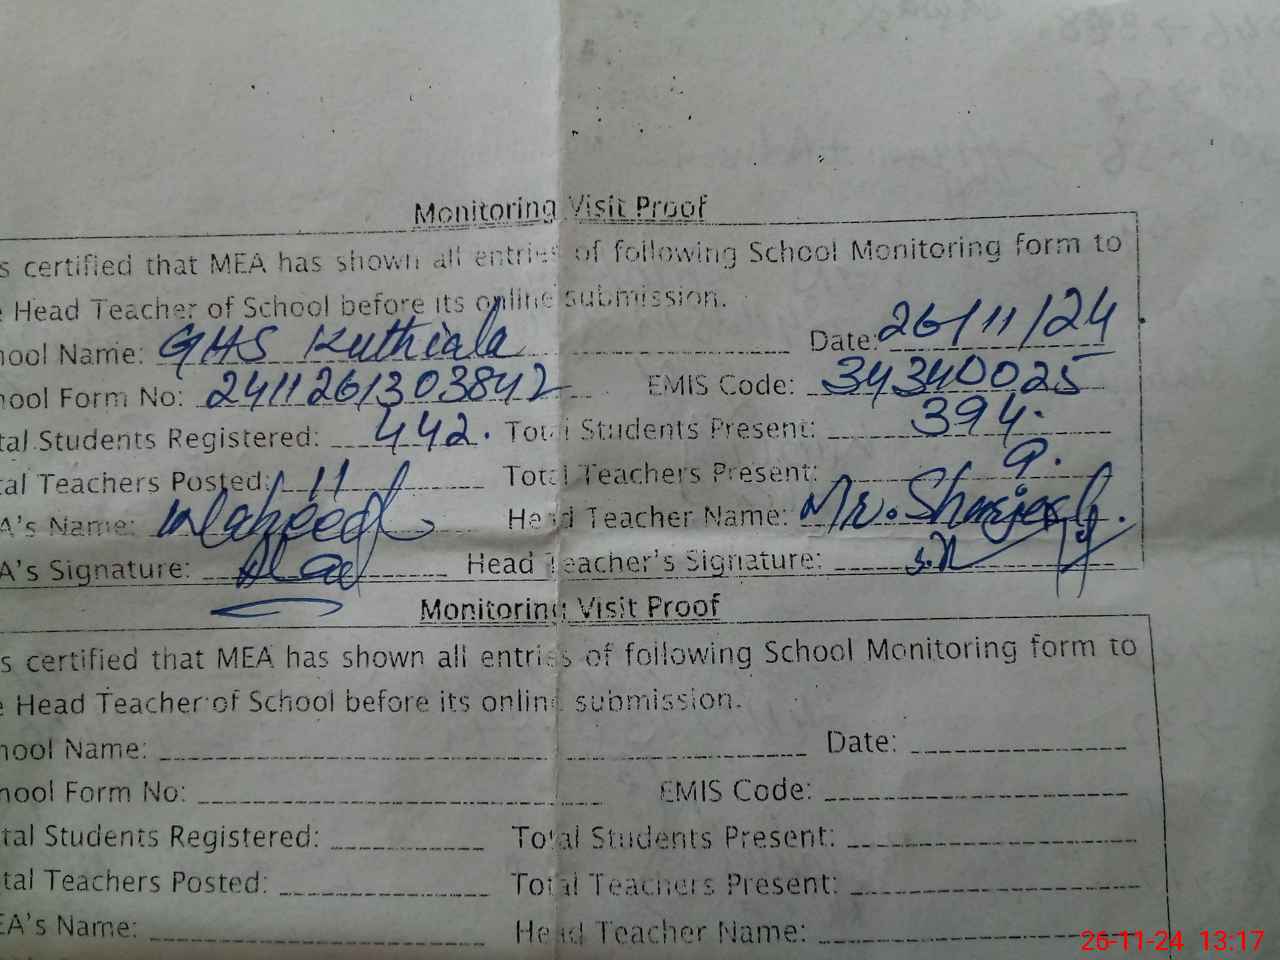 Monitoring Visit Proof
s certified that MEA has shown all entries of following School Monitoring form to
e Head Teacher of School before its online submission.
hool Name: GHS Kuthiala Date: 26/11/24
hool Form No: 2411261303842 EMIS Code: 34340025
tal Students Registered: 442. Total Students Present: 394.
tal Teachers Posted: 11 Total Teachers Present: 9.
A's Name: Waheed Head Teacher Name: Mr.
A's Signature: Head Teacher's Signature:
Monitoring Visit Proof
s certified that MEA has shown all entries of following School Monitoring form to
e Head Teacher of School before its online submission.
hool Name: Date:
hool Form No: EMIS Code:
tal Students Registered: Total Students Present:
tal Teachers Posted: Total Teachers Present:
EA's Name: Head Teacher Name:
26-11-24 13:17